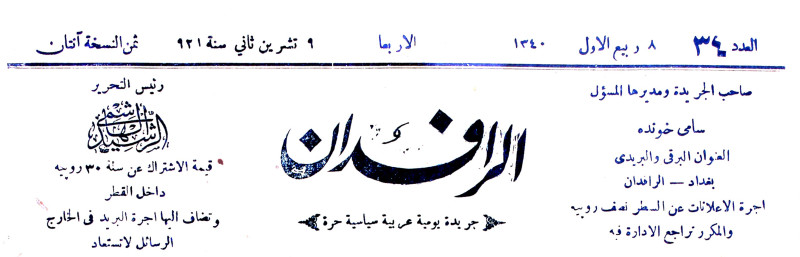 العدد ٣٤ ٨ ربيع الاول ١٣٤٠ الاربعا ٩ تشرين ثاني سنة ٩٢١ ثمن النسخة آنتان
صاحب الجريدة ومديرها المسؤل
سامى خونده
العنوان البرقى والبريدى
بغداد — الرافدان
اجرة الاعلانات عن السطر نصف روبيه
والمكرر تراجع الادارة فيه
الرافدان
جريدة يومية عربية سياسية حرة
رئيس التحرير
الرشيد الهاشمى
قيمة الاشتراك عن سنة ٣٠ روبيه
داخل القطر
وتضاف اليها اجرة البريد فى الخارج
الرسائل لاتستعاد